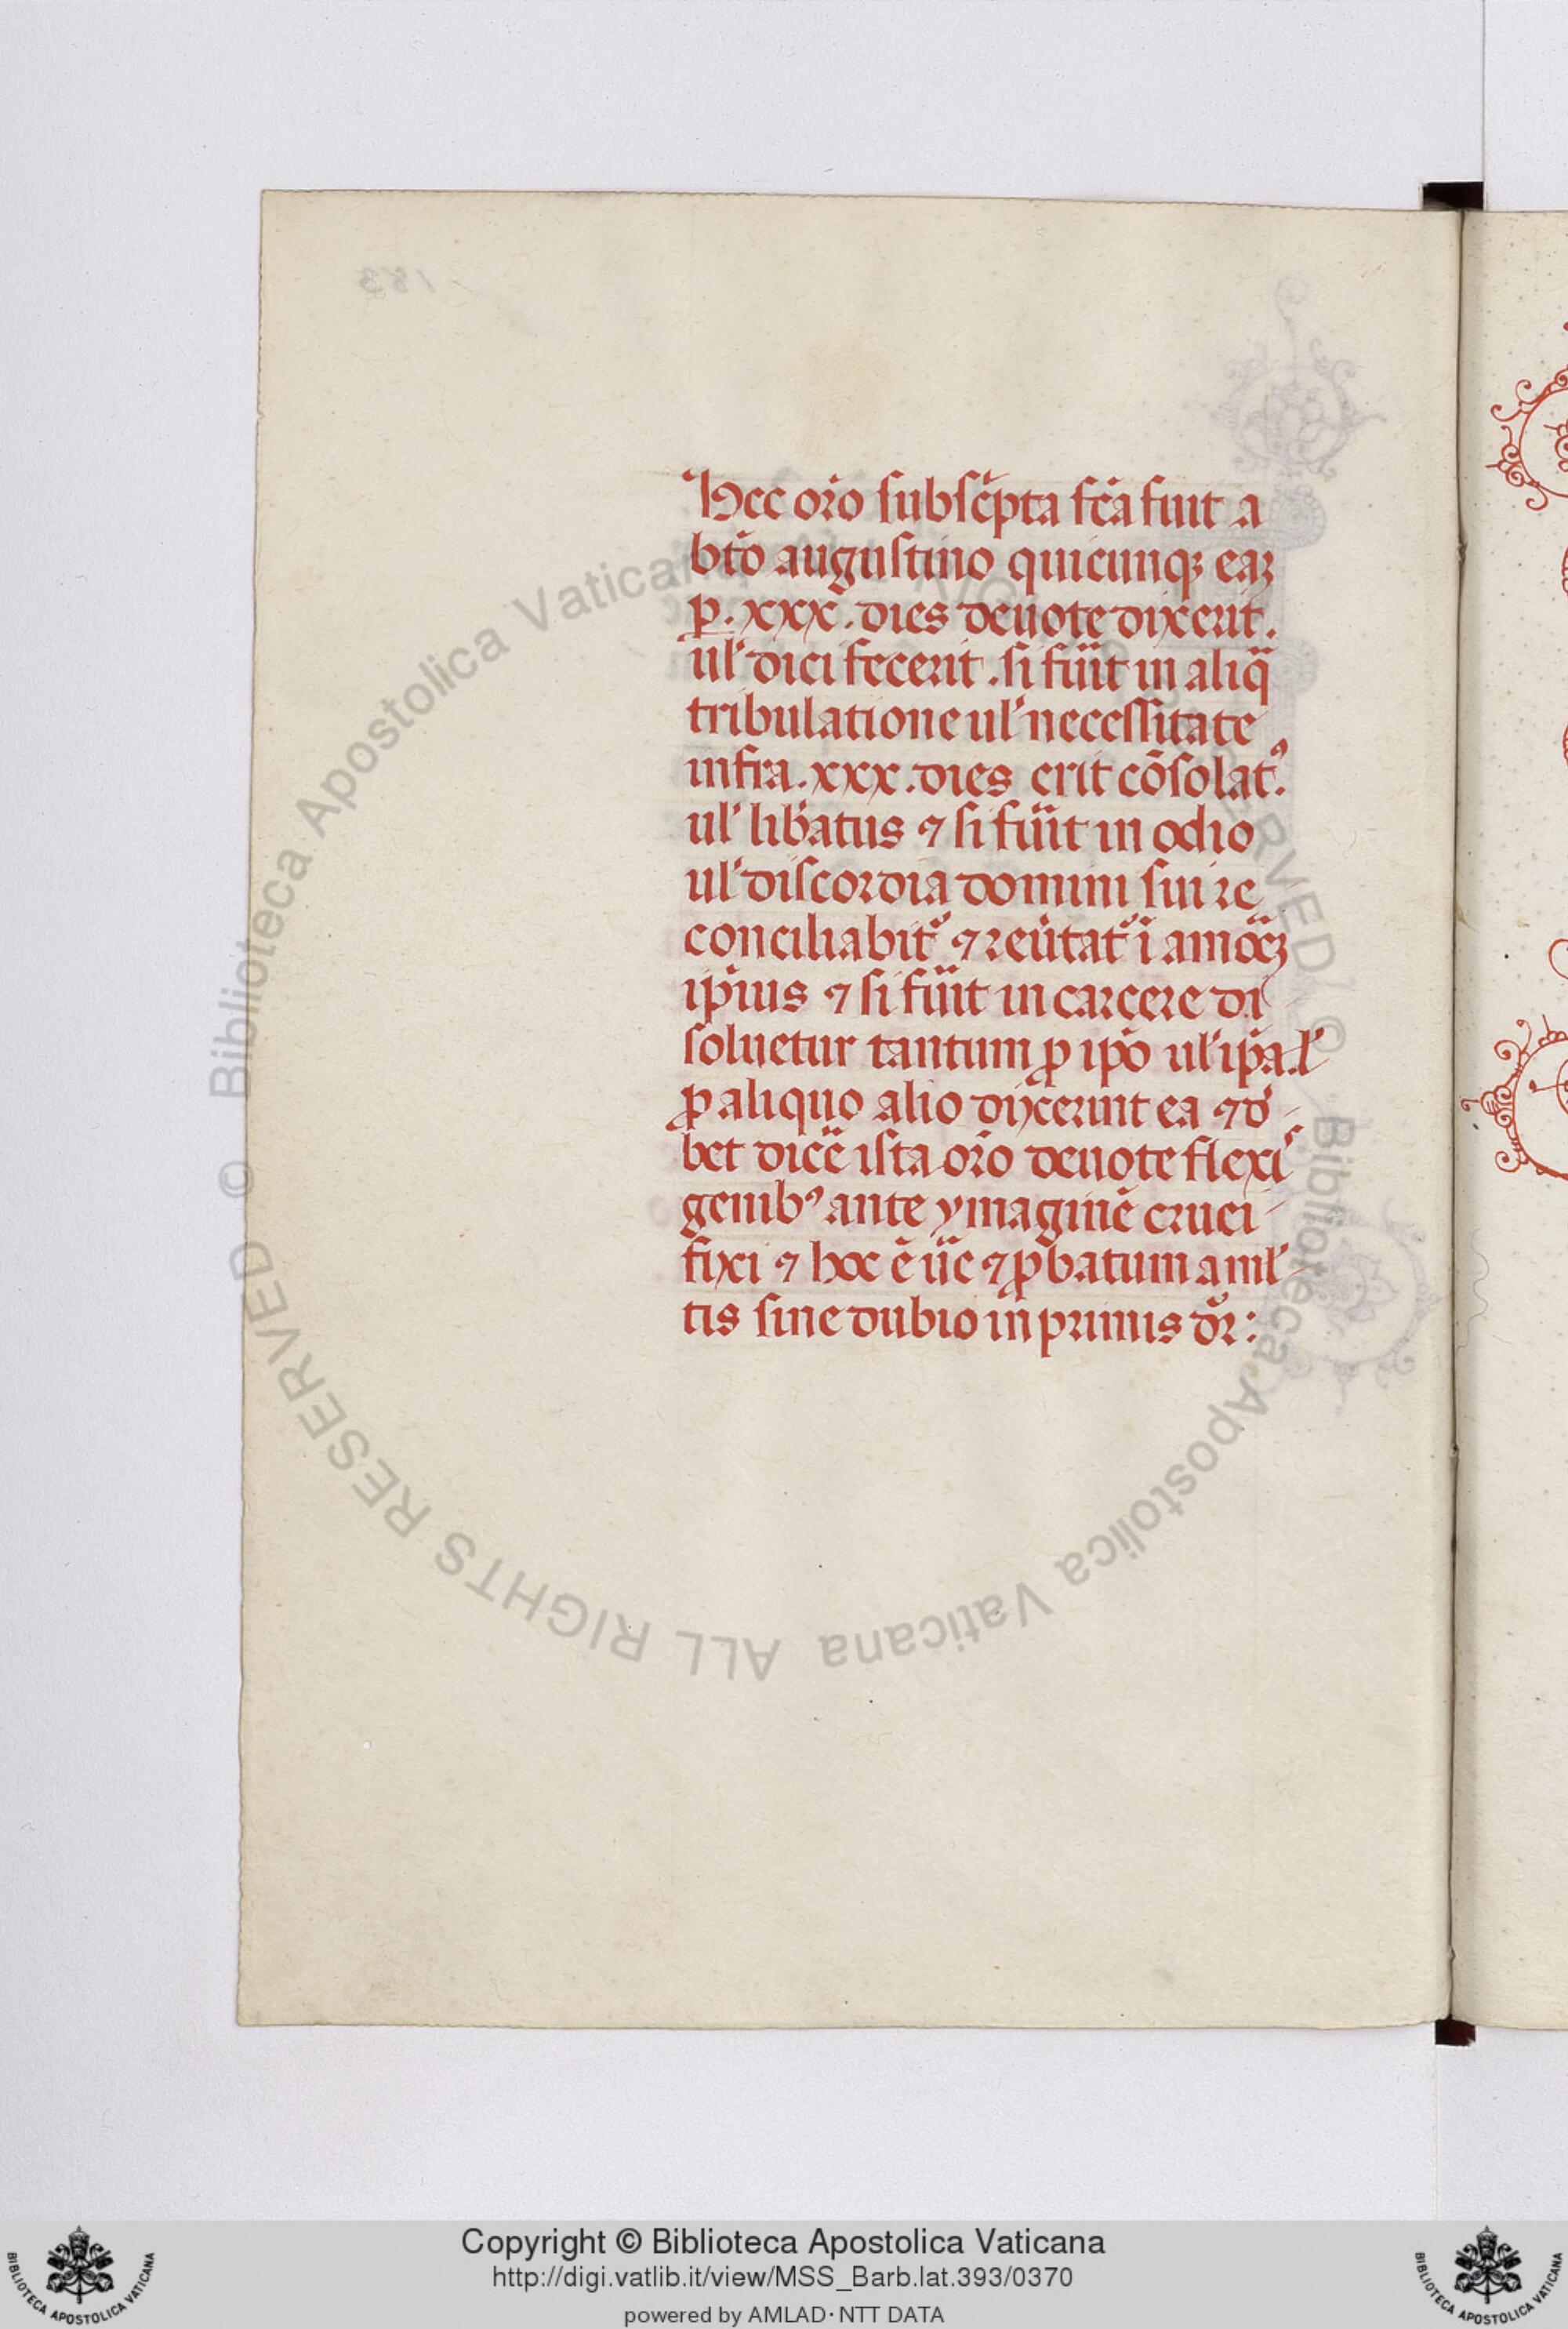 Hec or̄o subsc̄pta fc̄a fuit a
bt̄o augustino quicunqꝫ eaꝫ
ꝑ .xxx. dies deuote dixerit.
ul̓ dici fecerit . si fuīt in aliq̄
tribulatione ul̓ necessitate
infra .xxx. dies erit cōsolatꝰ.
ul̓ lib̄atus ⁊ si fuīt in odio
ul̓ discordia domini sui re
conciliabit᷑ ⁊ reūtat᷑ ī amōꝫ
ip̄ius ⁊ si fuīt in carcere di
soluetur tantum ꝓ ip̄o ul̓ ip̄a .l̓
ꝓ aliquo alio dixerint ea ⁊ d̓
bet dicē ista or̄o deuote flexi
genibꝰ ante ymaginē cruci
fixi ⁊ hoc ē uc̄ ⁊ ꝓbatum a ml̓
tis sine dubio in primis dr̄ :
183
Biblioteca Apostolica Vaticana ALL RIGHTS RESERVED © Biblioteca Apostolica Vaticana ALL RIGHTS RESERVED ©
Copyright © Biblioteca Apostolica Vaticana
http://digi.vatlib.it/view/MSS_Barb.lat.393/0370
powered by AMLAD·NTT DATA
BIBLIOTECA APOSTOLICA VATICANA
BIBLIOTECA APOSTOLICA VATICANA